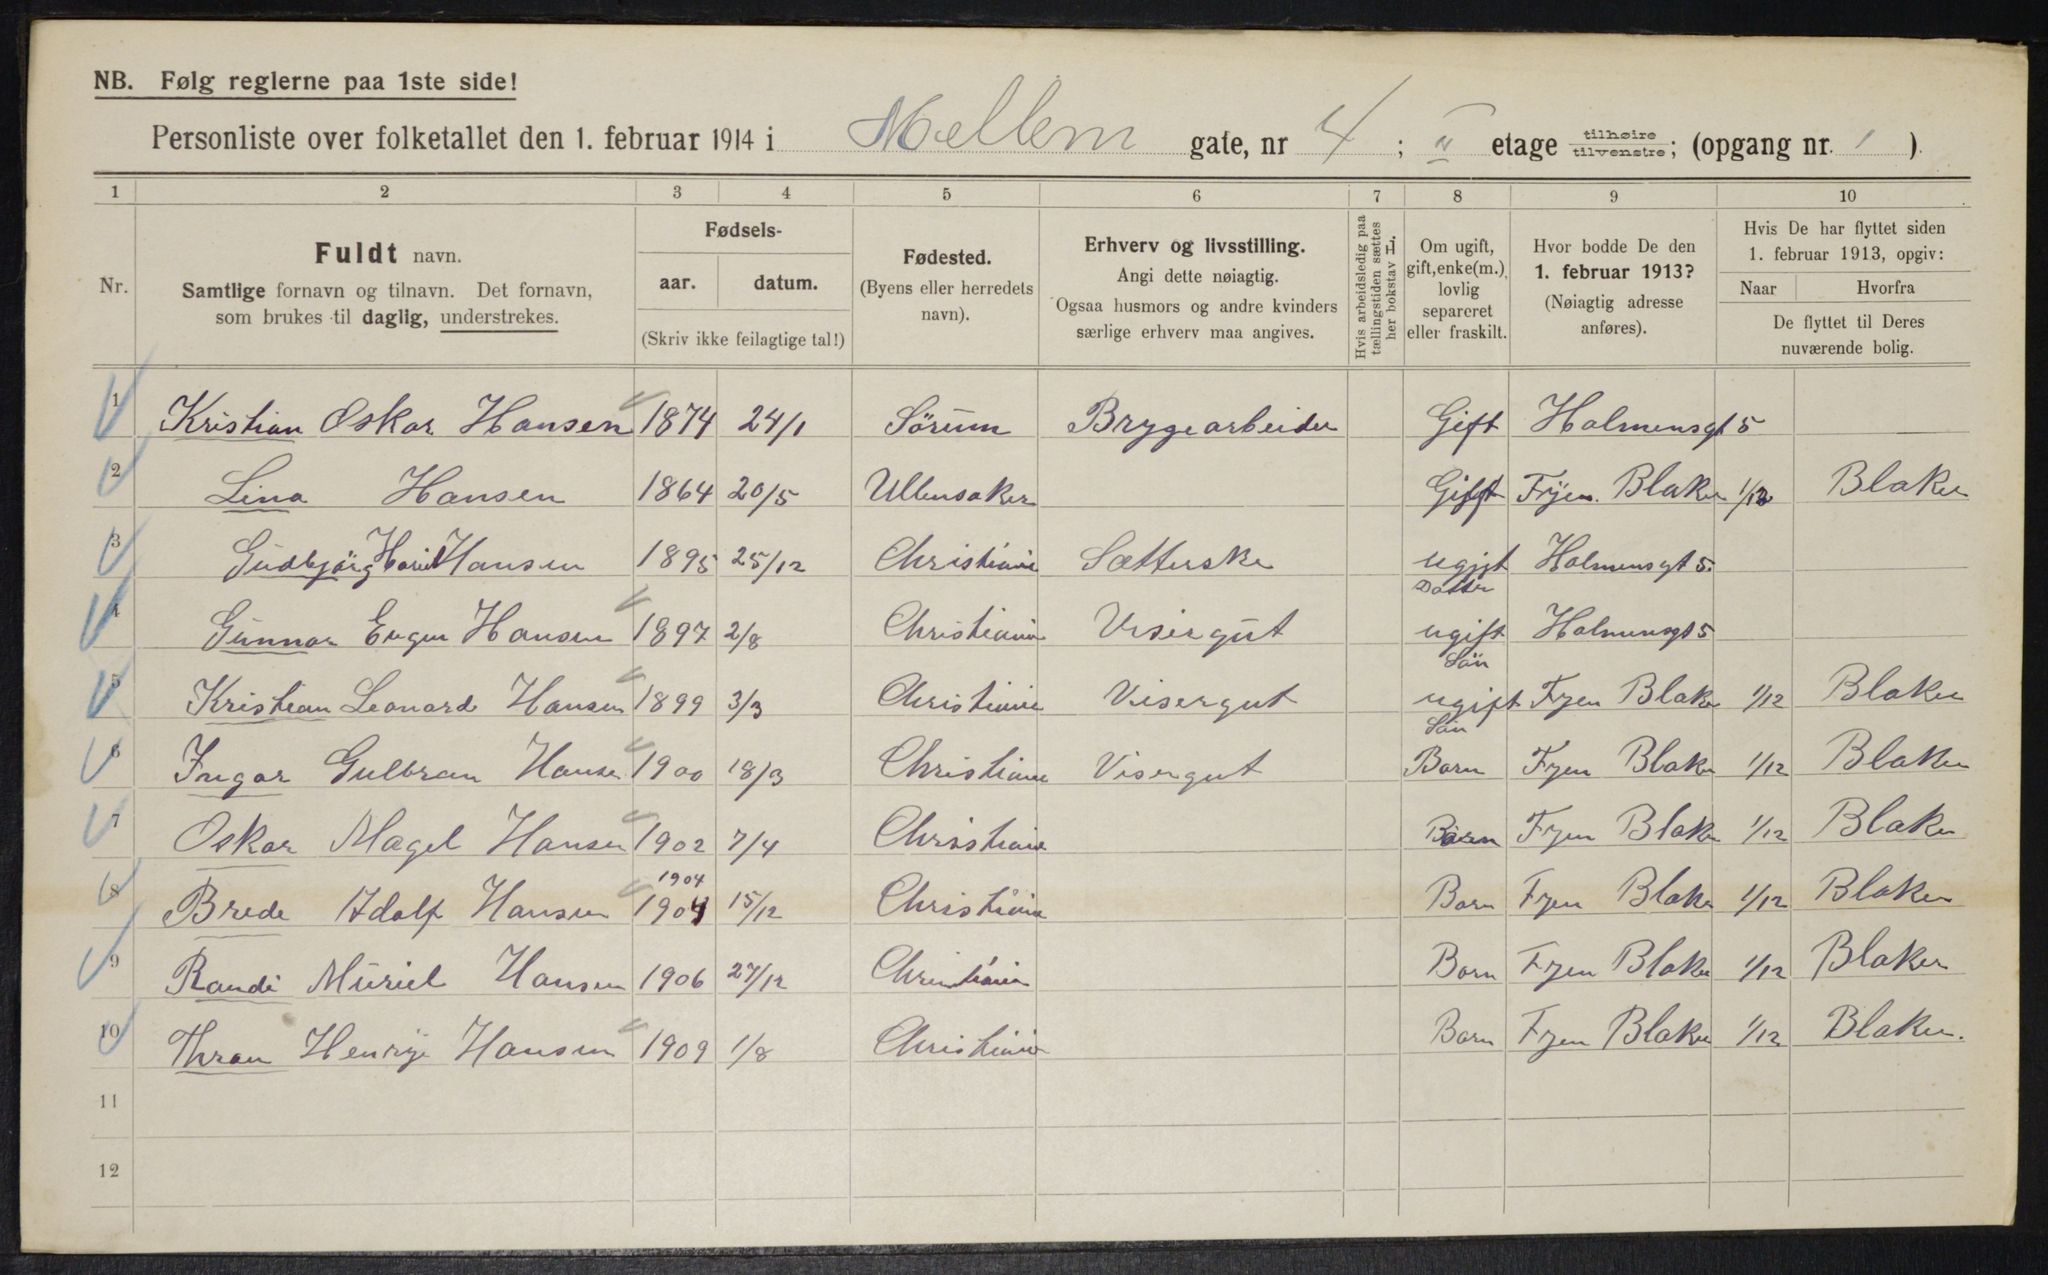 NB. Følg reglerne paa 1ste side!
Personliste over folketallet den 1. februar 1914 i Mellem gate, nr 4 ; II etage tilhøire tilvenstre; (opgang nr. 1 ).
1 2 3 4 5 6 7 8 9 10
Nr.
Fuldt navn.
Samtlige fornavn og tilnavn. Det fornavn,
som brukes til daglig, understrekes.
Fødsels-
aar. datum.
(Skriv ikke feilagtige tal!)
Fødested.
(Byens eller herredets
navn).
Erhverv og livsstilling.
Angi dette nøiagtig.
Ogsaa husmors og andre kvinders
særlige erhverv maa angives.
Hvis arbeidsledig paa
tællingstiden sættes
her bokstav L.
Om ugift,
gift, enke(m.),
lovlig
separeret
eller fraskilt.
Hvor bodde De den
1. februar 1913?
(Nøiagtig adresse
anføres).
Hvis De har flyttet siden
1. februar 1913, opgiv:
Naar Hvorfra
De flyttet til Deres
nuværende bolig.
1 Kristian Oskar Hansen 1874 24/1 Sörum Brygearbeider Gift Holmensgt 5
2 Lina Hansen 1864 20/5 Ullensaker Gifft Fyen. Blaker 1/12 Blaker
3 Gudbjörg Hansen 1895 25/12 Christiania Sætterske ugift Holmensgt 5.
Datter
4 Gunnar Eugen Hansen 1897 2/8 Christiania Visergut ugift Holmensgt 5
Sön
5 Kristian Leonard Hansen 1899 3/3 Christiania Visergut ugift Fyen Blaker 1/12 Blaker
Sön
6 Ingar Gulbran Hansen 1900 18/3 Christiania Visergut Barn Fyen Blaker 1/12 Blaker
7 Oskar Magel Hansen 1902 7/4 Christiania Barn Fyen Blaker 1/12 Blaker
1904
8 Brede Adolf Hansen 1904 15/12 Christiania Barn Fyen Blaker 1/12 Blaker
9 Randi Müriel Hansen 1906 27/12 Christiania Barn Fyen Blaker 1/12 Blaker
10 Thran Henry Hansen 1909 1/8 Christiania Barn Fyen Blaker 1/12 Blaker.
11
12